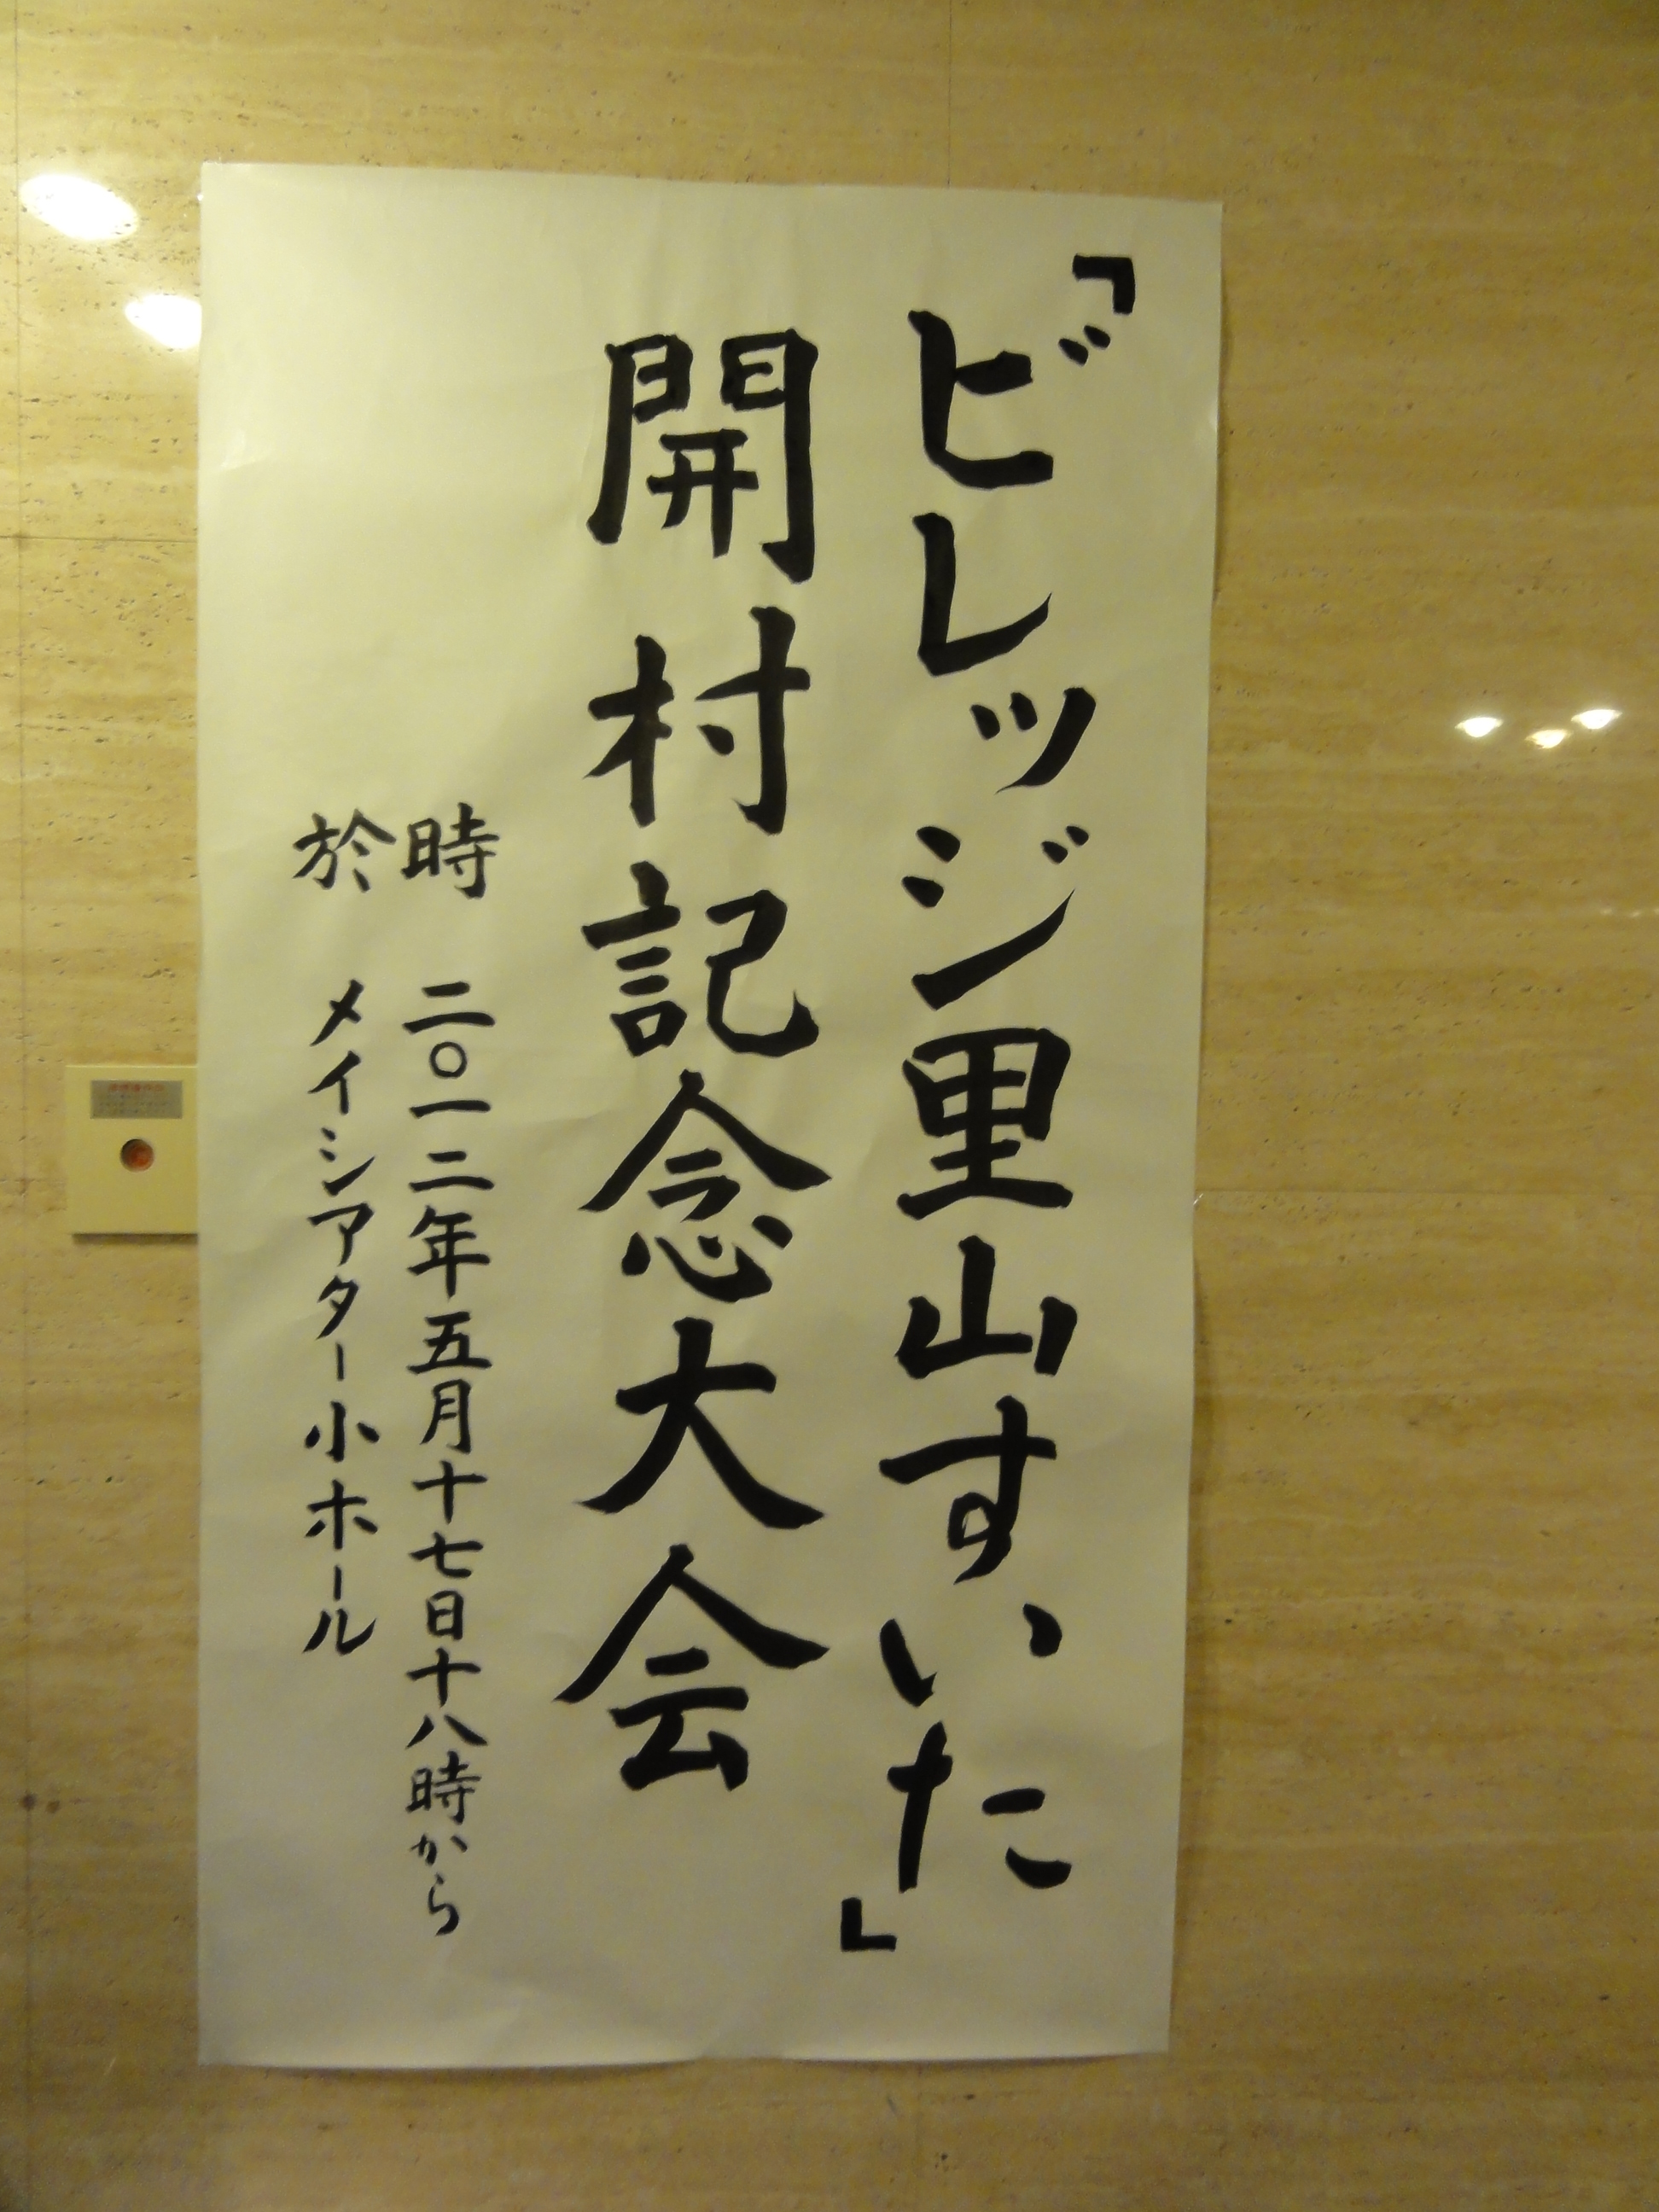 「ビレッジ里山すいた」
開村記念大会
時　二〇一二年五月十七日十八時から
於　メイシアター小ホール